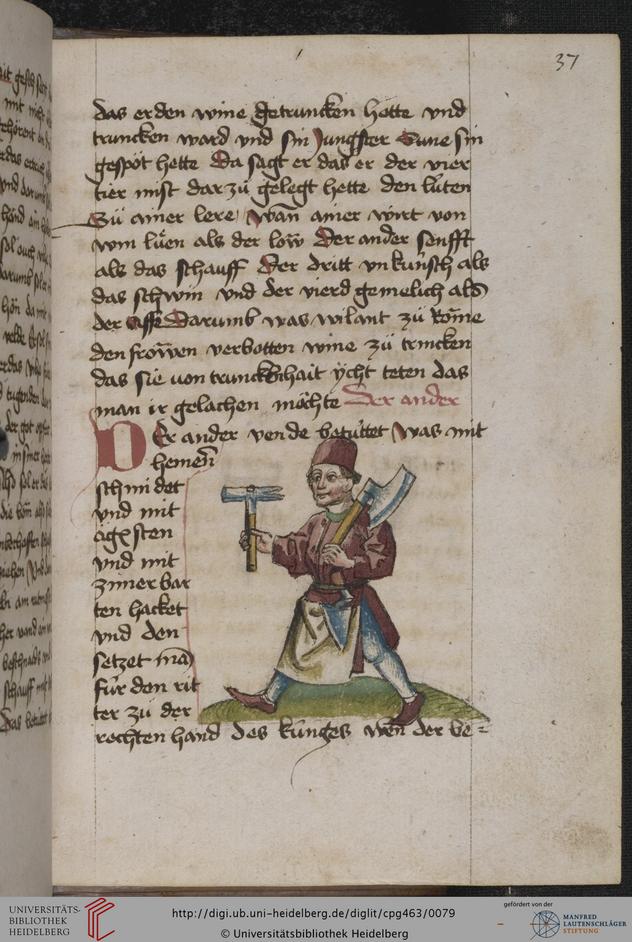 37
das er den wine getruncken hette vnd
truncken ward vnd sin Jungster Sune sin
gespöt hette Da sagt er das er der vier
tier mist dar zů gelegt hette den lüten
Zů ainer lere wan ainer wirt von
win lüen als der löw Der ander senfft
als das schauff Der dritt vnkünsch als
das schwin vnd der vierd gemelich als
der affe Darumb was wilant zů Rome
den frowen verbotten wine zů trincken
das sie von trunckenhait ycht teten das
man ir gelachen möchte Der ander
DEr ander vende betüttet was mit
hemen
schmidet
vnd mit
agxsten
vnd mit
zimerbar
ten hacket
vnd den
setzet mā
für den rit
ter zů der
rechten hand des künges wen der be=
UNIVERSITÄTS-
BIBLIOTHEK
HEIDELBERG
http://digi.ub.uni-heidelberg.de/diglit/cpg463/0079
© Universitätsbibliothek Heidelberg
gefördert von der
MANFRED
LAUTENSCHLÄGER
STIFTUNG